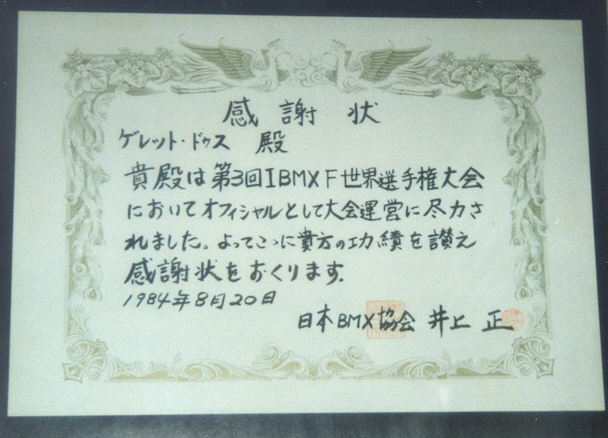 感謝状
ゲレット・ドゥス 殿
貴殿は第3回IBMXF世界選手権大会
においてオフィシャルとして大会運営に尽力さ
れました。よってここに貴方の功績を讃え
感謝状をおくります.
1984年8月20日
日本BMX協会 井上 正